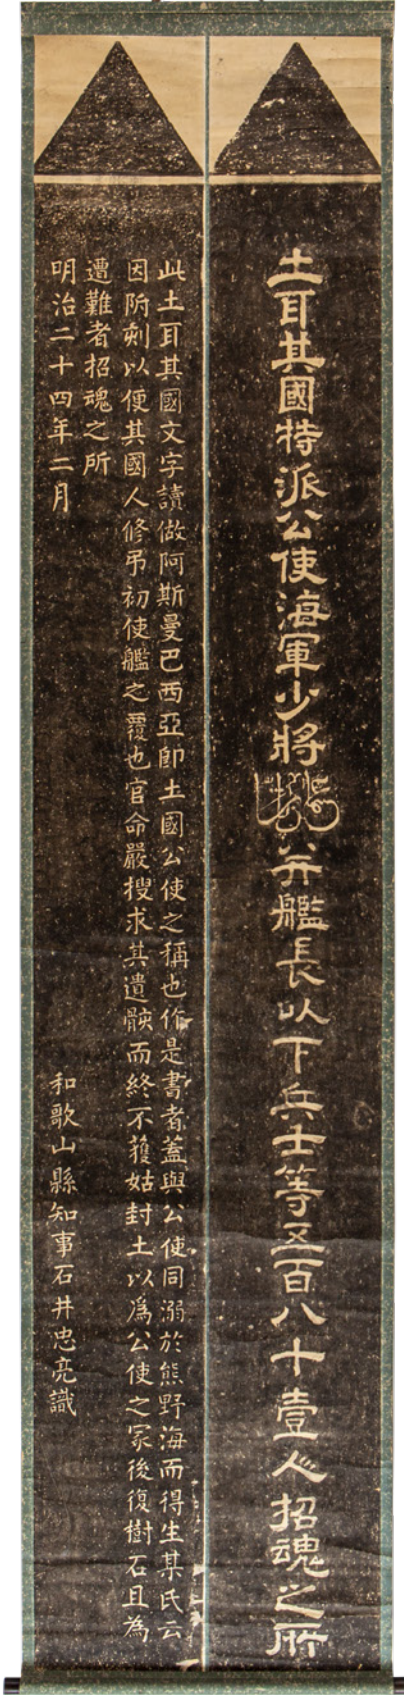 土耳其國特派公使海軍少將
公并艦長以下兵士等五百八十壹人招魂之所
此土耳其國文字讀做阿斯曼巴西亞卽土國公使之稱也作是書者蓋與公使同溺於熊野海而得生某氏云
因附刻以便其國人修吊初使艦之覆也官命嚴搜求其遺骸而終不獲姑封土以爲公使之冢後復樹石且為
遭難者招魂之所
明治二十四年二月
和歌山縣知事石井忠亮識